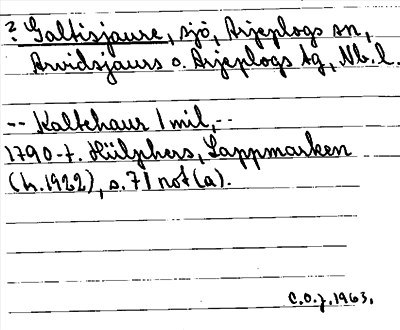 ? Galtisjaure, sjö, Arjeplogs sn,
Arvidsjaurs o. Arjeplogs tg, Nb. l.
-- Kaltehaur 1 mil, --
1790-t. Hülphers, Lappmarken
(h. 1922), s. 71 not (a).
C.O.J. 1963.